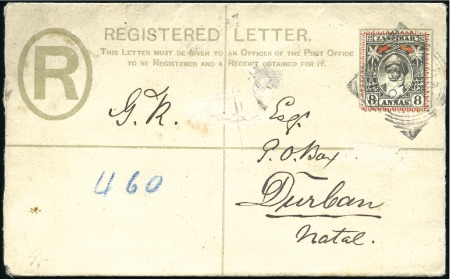 REGISTERED LETTER.
THIS LETTER MUST BE GIVEN TO AN OFFICER OF THE POST OFFICE
TO BE REGISTERED AND A RECEIPT OBTAINED FOR IT.
R
ZANZIBAR
8 ANNAS 8
G. R. Esq.
P. O. Box
460
Durban
Natal.